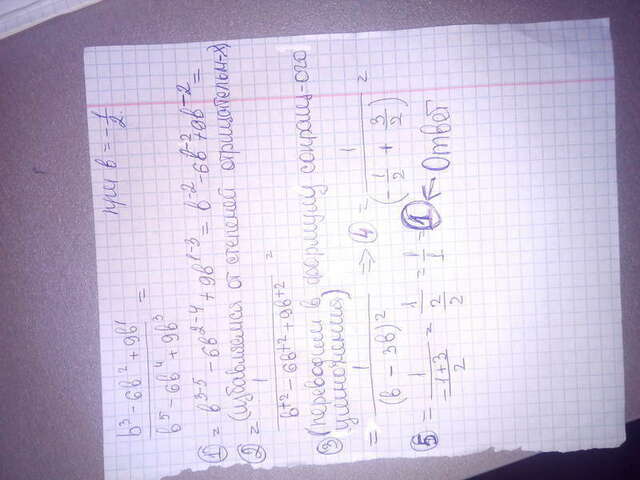 b³ - 6b² + 9b¹ / b⁵ - 6b⁴ + 9b³ = при b = -1/2
① = b³⁻⁵ - 6b²⁻⁴ + 9b¹⁻³ = b⁻² - 6b⁻² + 9b⁻² =
② = (избавляемся от степеней отрицательн-х)
1 / b⁺² - 6b⁺² + 9b⁺² =
③ (переводим в формулу сокращ-ого
умножения)
= 1 / (b - 3b)² => ④ = 1 / (-1/2 + 3/2)²
⑤ = 1 / (-1+3 / 2) = 1 / (2/2) = 1/1 = 1 ← Ответ